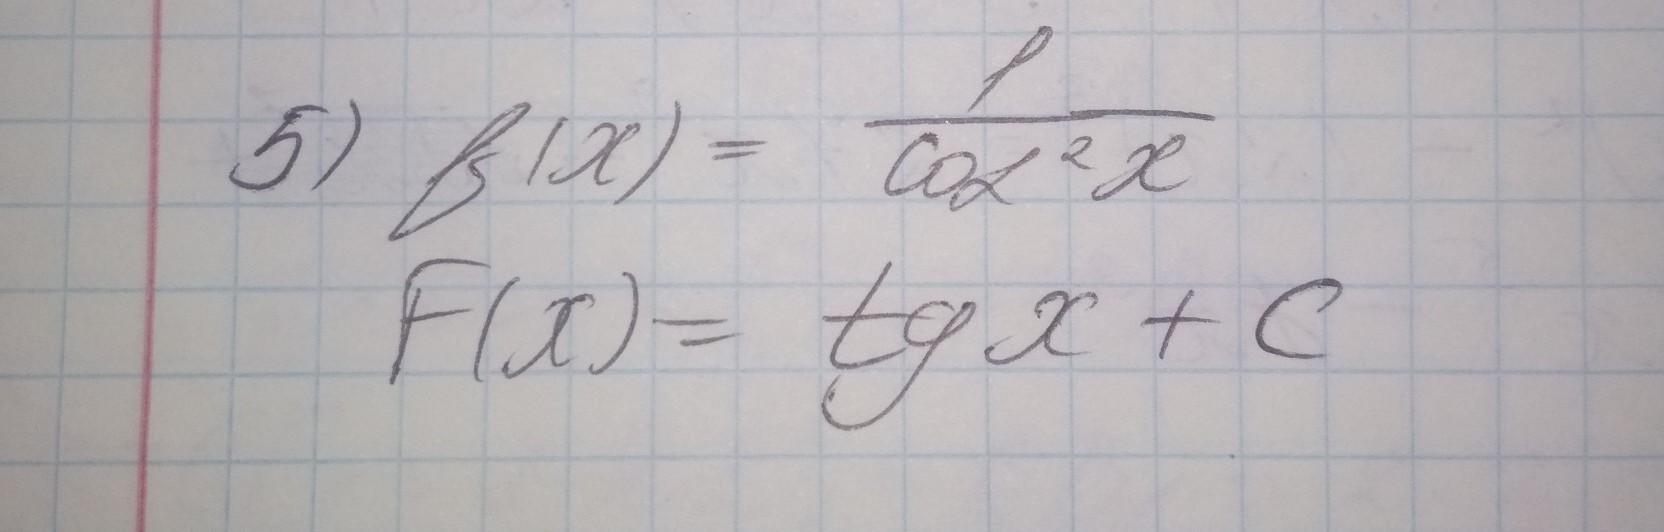 5) f(x) = 1/cos²x
F(x) = tg x + C